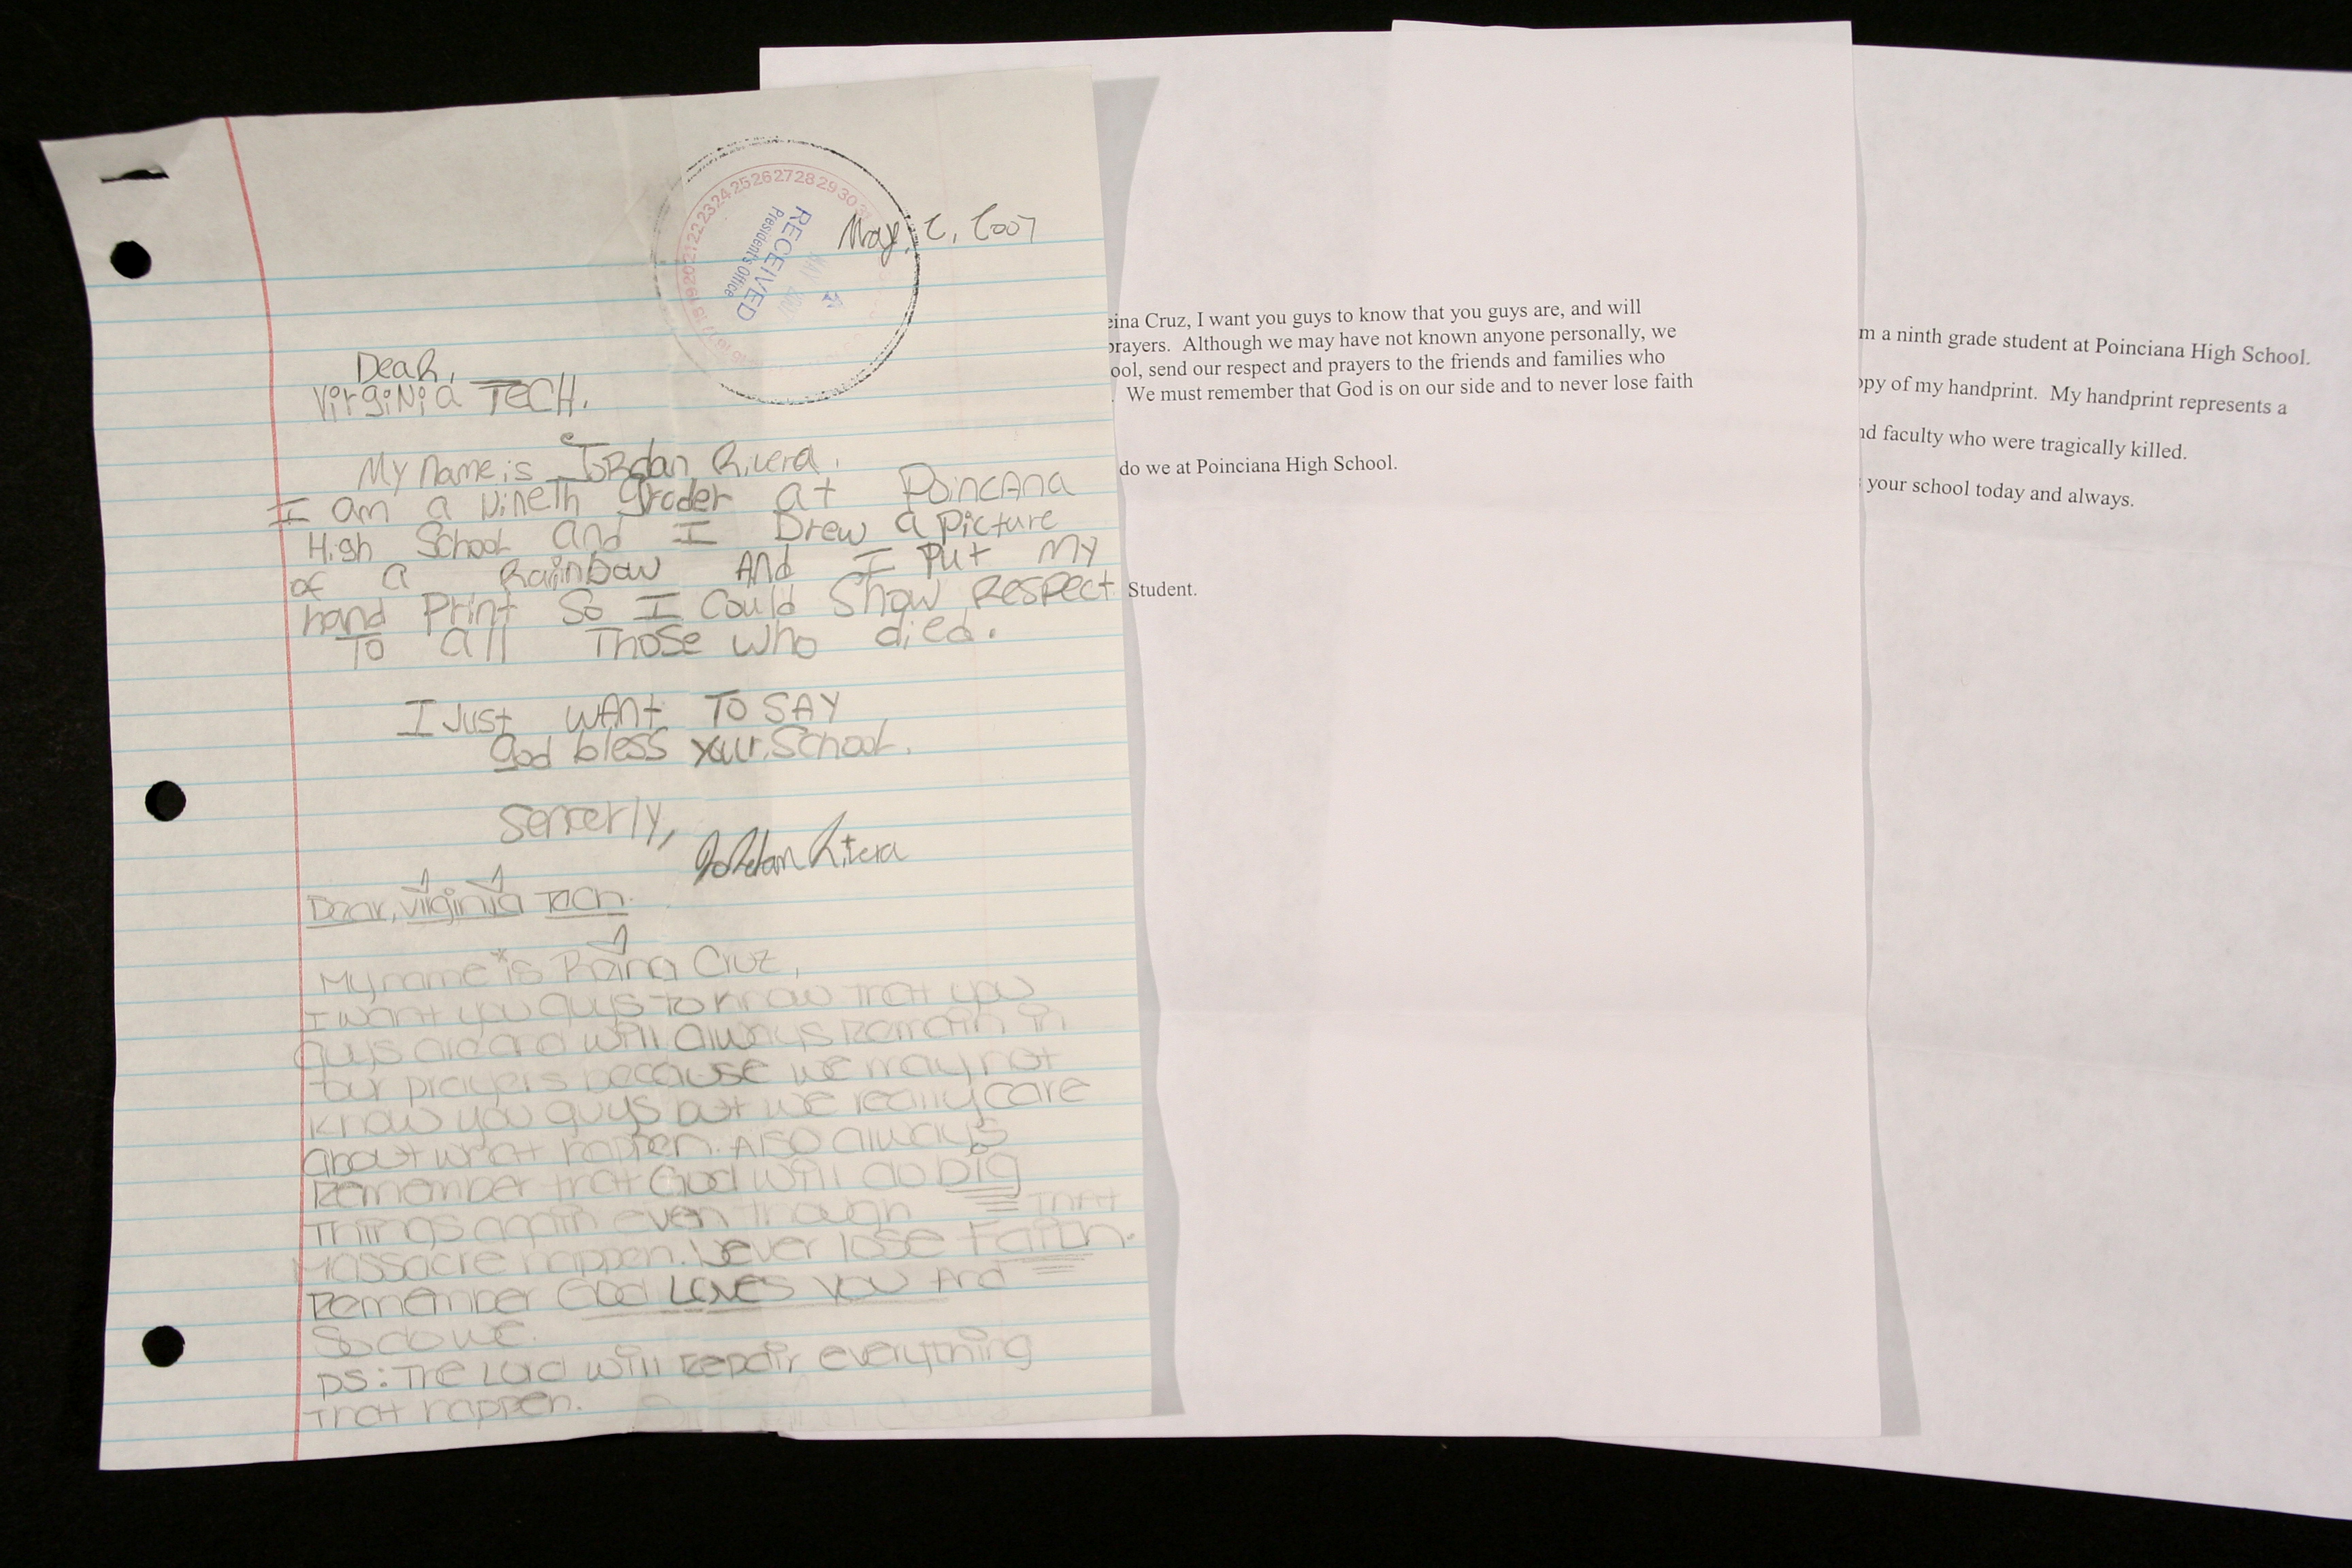 May, 2, 2007
RECEIVED
President's Office
Dear,
Virginia TECH.
My name is Jordan Rivera.
I am a Nineth grader at Poincana
High School and I Drew a picture
of a Rainbow And I put my
hand Print So I Could Show Respect
To all Those who died.
I Just want To SAY
God bless your School.
Sencerly,
Jordan Rivera
Dear, Virginia Tech.
My name is Reina Cruz,
I want you guys to know that you
guys are and will always Remain in
our prayers because we may not
know you guys but we really care
about what happen. Also always
Remember that God will do big
Things again even though That
Massacre happen. Never lose Faith.
Remember God LOVES YOU And
So do we.
PS: The Lord will Repair everything
That happen.
eina Cruz, I want you guys to know that you guys are, and will
prayers. Although we may have not known anyone personally, we
ool, send our respect and prayers to the friends and families who
. We must remember that God is on our side and to never lose faith
do we at Poinciana High School.
Student.
m a ninth grade student at Poinciana High School.
opy of my handprint. My handprint represents a
nd faculty who were tragically killed.
your school today and always.